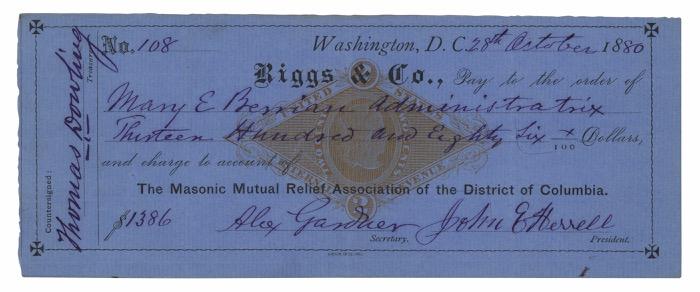 No. 108
Washington, D. C. 28th October 1880
Riggs & Co., Pay to the order of
Mary E Berrian administratrix
Thirteen Hundred and Eighty Six x/100 Dollars,
and charge to account of
The Masonic Mutual Relief Association of the District of Columbia.
$1386 Alex Gardner John E Herrell
Secretary. President.
Countersigned:
Thomas Dowling
Treasurer
UNITED STATES
INTERNAL REVENUE
2